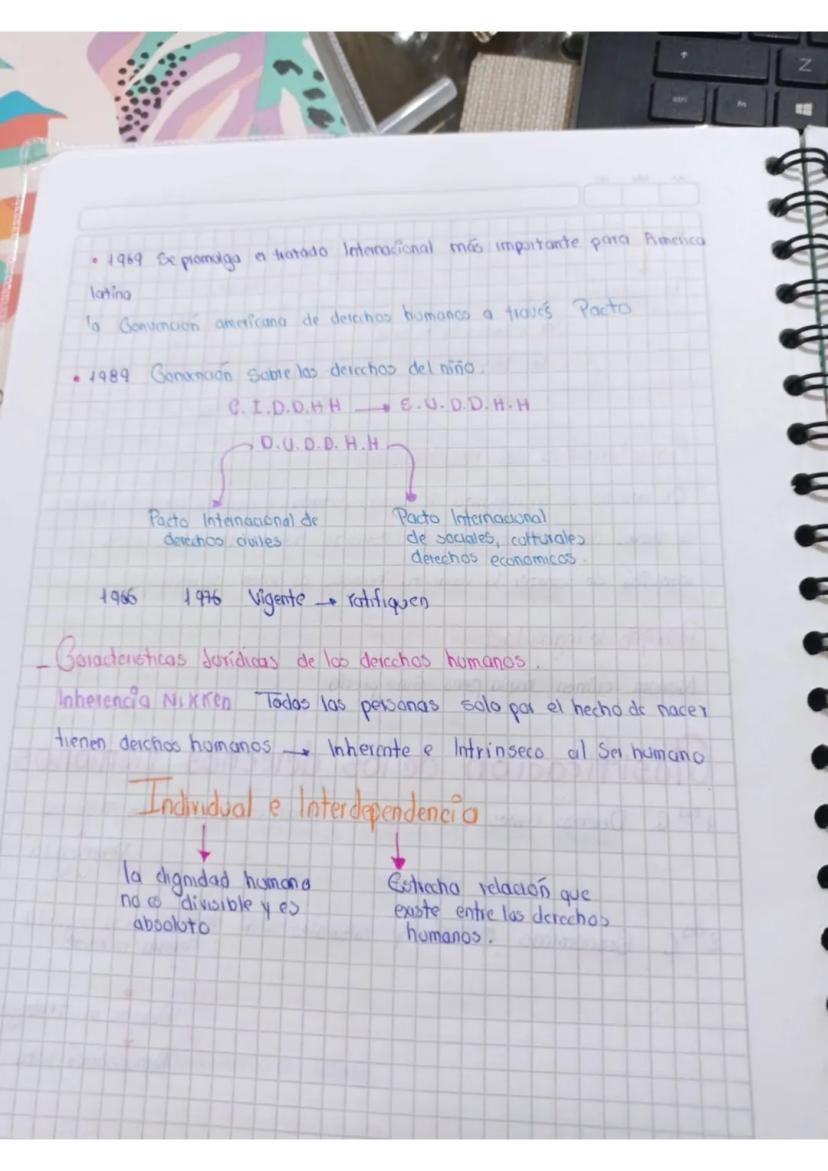 • 1969 Se promulga el tratado Internacional más importante para America
latina
la Convención americana de derechos humanos a través Pacto
• 1989 Convención Sobre los derechos del niño.
C. I. D. D. H H → E. U. D. D. H. H
D. U. D. D. H. H
Pacto Internacional de
derechos civiles
Pacto Internacional
de sociales, culturales
derechos economicos.
1966 1976 Vigente → ratifiquen
- Caracteristicas Jurídicas de los derechos humanos.
Inherencia NIKKEN Todas las personas solo por el hecho de nacer
tienen derchos humanos → Inherente e Intrinseco al Ser humano
Individual e Interdependencia
la dignidad humana
no es divisible y es
absoluto
Estrecha relación que
existe entre los derechos
humanos.
ctrl
fn
Z